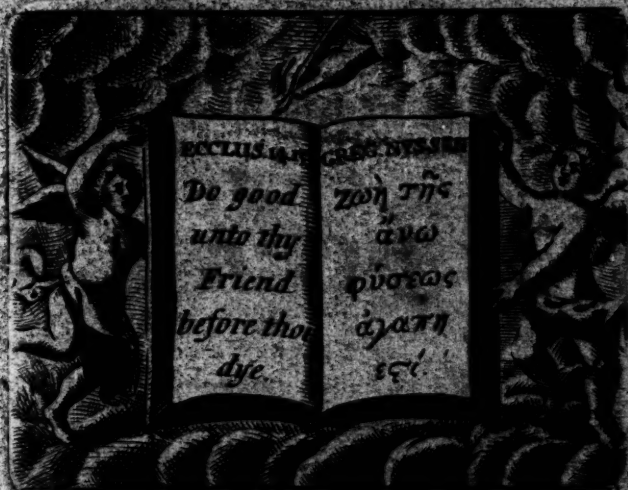 ECCLUS. 14. 13
Do good
unto thy
Friend
before thou
dye.
GREG. NYSSEN
Ζωὴ τῆς
ἄνω
φύσεως
ἀγαπη
εϛί.